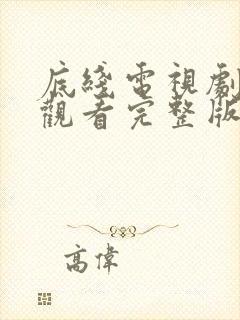 底綫電視劇
觀看完整版
高偉